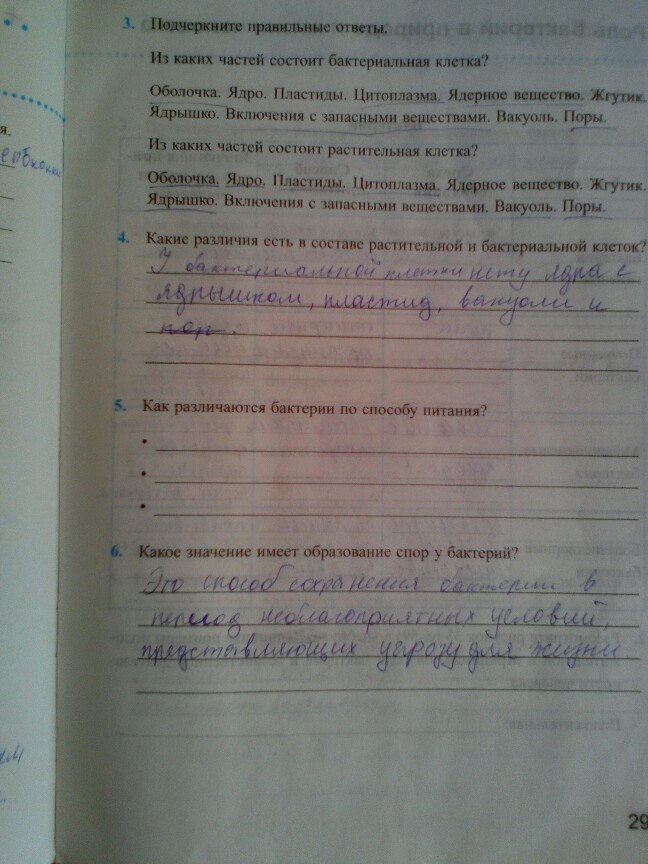 3. Подчеркните правильные ответы.
Из каких частей состоит бактериальная клетка?
Оболочка. Ядро. Пластиды. Цитоплазма. Ядерное вещество. Жгутик.
Ядрышко. Включения с запасными веществами. Вакуоль. Поры.
Из каких частей состоит растительная клетка?
Оболочка. Ядро. Пластиды. Цитоплазма. Ядерное вещество. Жгутик.
Ядрышко. Включения с запасными веществами. Вакуоль. Поры.
4. Какие различия есть в составе растительной и бактериальной клеток?
У бактериальной клетки нету ядра с
ядрышком, пластид, вакуоли и
пор.
5. Как различаются бактерии по способу питания?
6. Какое значение имеет образование спор у бактерий?
Это способ сохранения бактерии в
период неблагоприятных условий,
представляющих угрозу для жизни
29